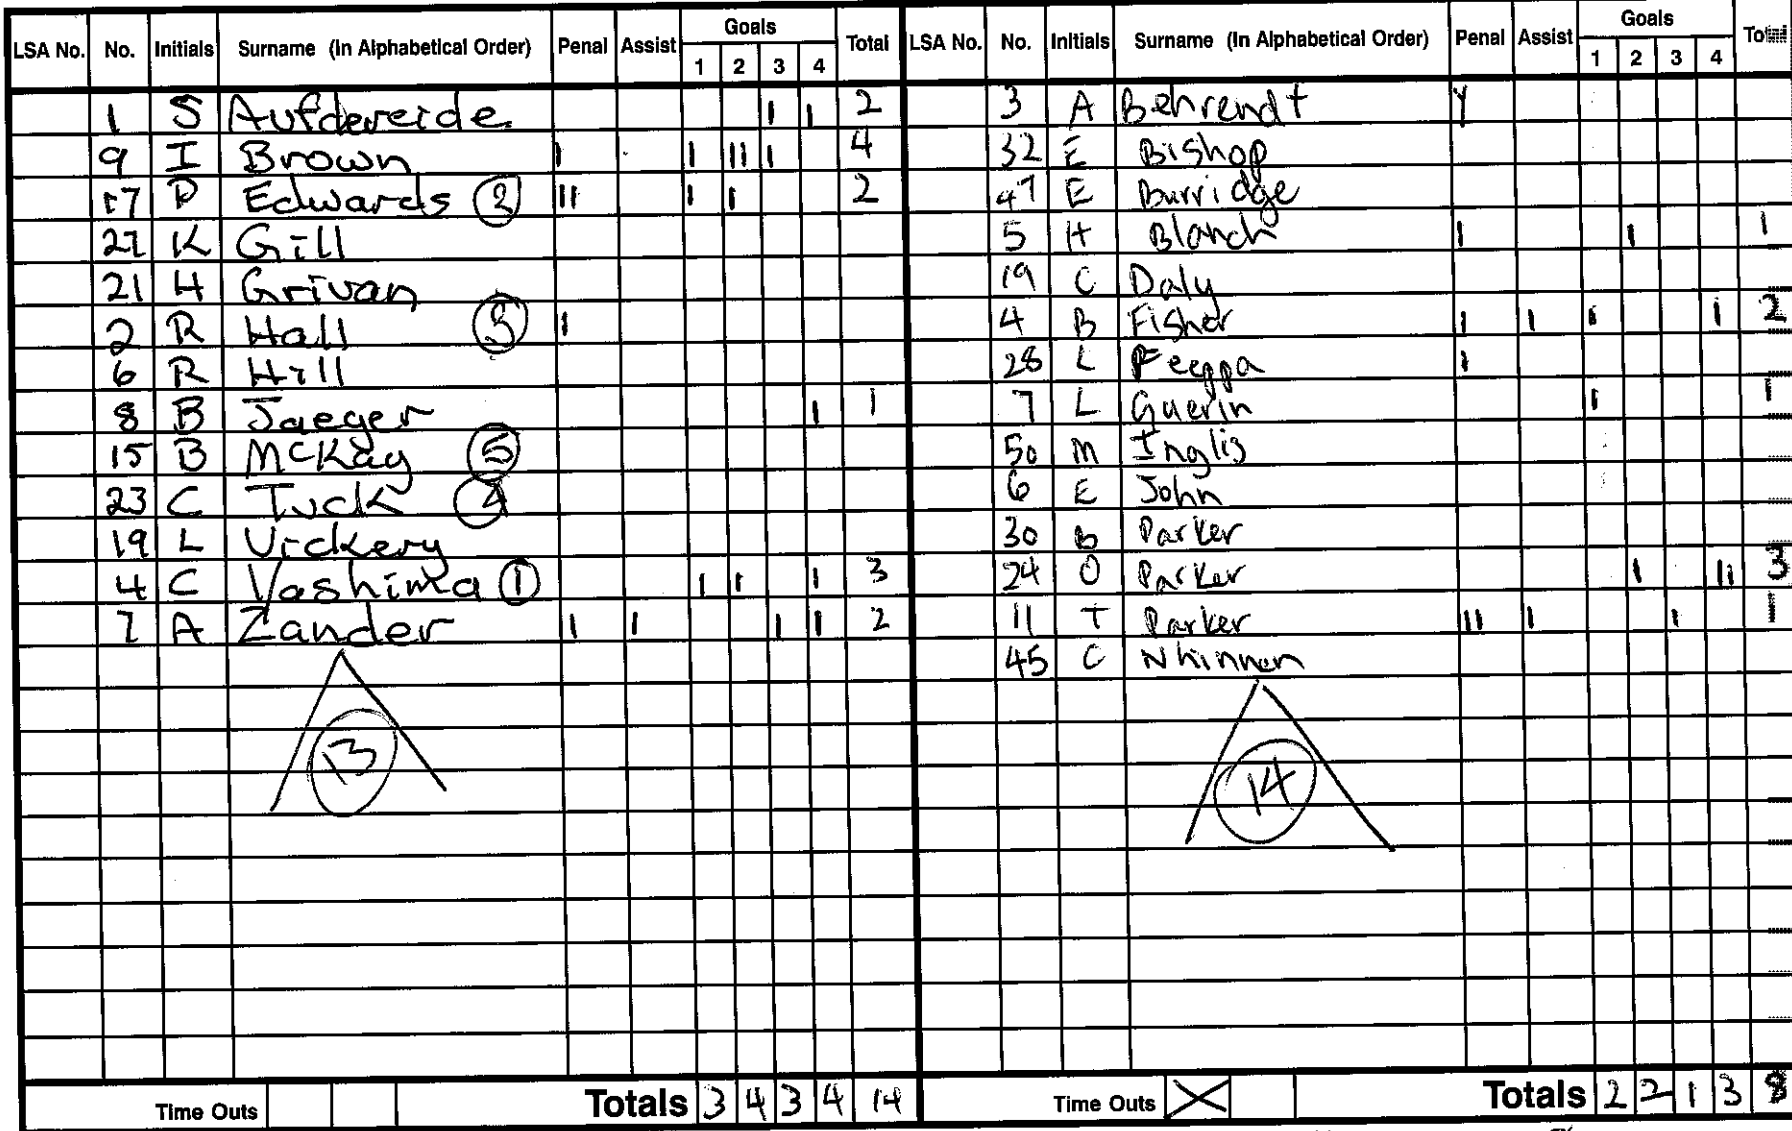 LSA No. No. Initials Surname (In Alphabetical Order) Penal Assist Goals 1 2 3 4 Total
1 S Aufdereide I I 2
9 I Brown I I II I 4
17 D Edwards ② II I I 2
27 K Gill
21 H Grivan
2 R Hall ③ I
6 R Hill
8 B Jaeger I 1
15 B McKay ⑤
23 C Tuck ④
19 L Vickery
4 C Vashima ① I I I 3
7 A Zander I I I I 2
13
Time Outs Totals 3 4 3 4 14
LSA No. No. Initials Surname (In Alphabetical Order) Penal Assist Goals 1 2 3 4 Total
3 A Behrendt Y
32 E Bishop
47 E Burridge
5 H Blanch I I 1
19 C Daly
4 B Fisher I I I I 2
28 L I
7 L Guerin I 1
50 M Inglis
6 E John
30 B Parker
24 O Parker I II 3
11 T Parker III I I 1
45 C Nhinnen
14
Time Outs X Totals 2 2 1 3 8